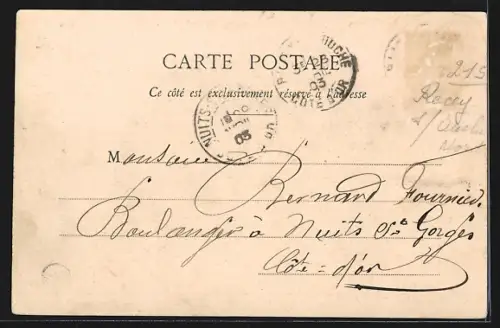 CARTE POSTALE
Ce côté est exclusivement réservé à l'adresse
OUCHE
COTE D'OR
NUITS
03
215
Monsieur
Bernard Fournier
Boulanger à Nuits St Gorges
Côte=d'or